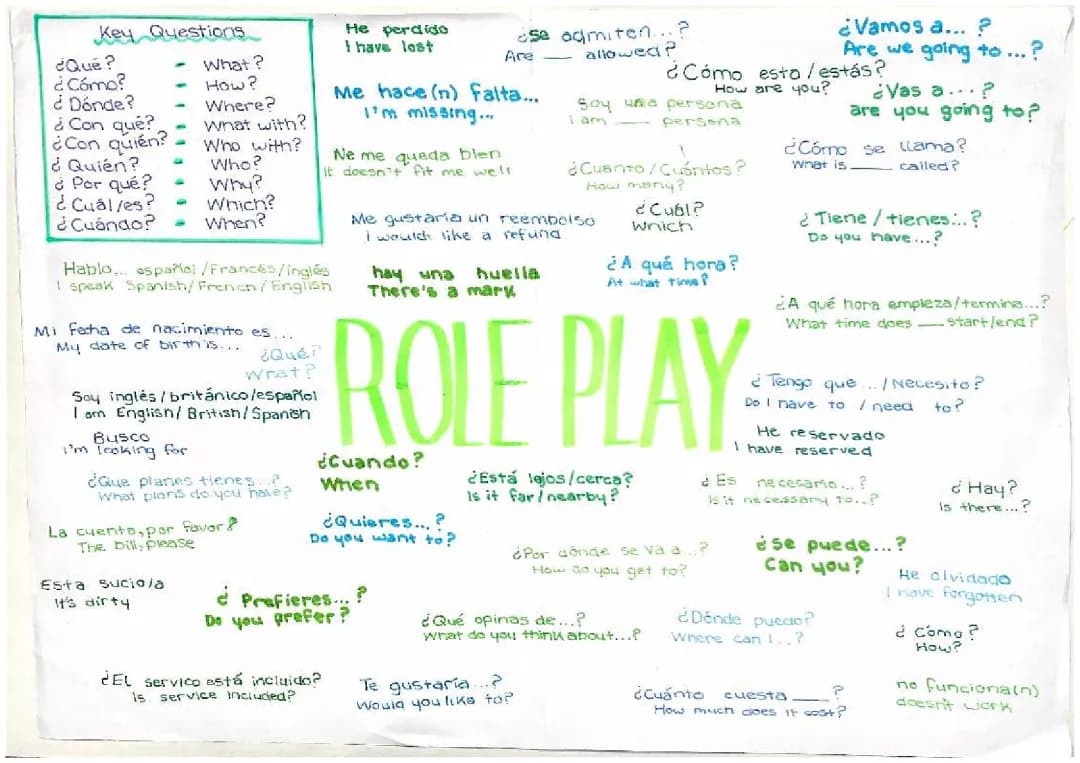 Key Questions
¿Qué? - What?
¿Cómo? - How?
¿Dónde? - Where?
¿Con qué? - What with?
¿Con quién? - Who with?
¿Quién? - Who?
¿Por qué? - Why?
¿Cuál/es? - Which?
¿Cuándo? - When?
He perdido
I have lost
¿se admiten...?
Are ___ allowed?
¿Vamos a... ?
Are we going to ...?
Me hace(n) falta...
I'm missing...
¿Cómo esta/estás?
How are you?
Soy una persona
I am ___ persona
¿Vas a...?
are you going to?
Ne me queda bien
it doesn't fit me well
¿Cuanto/Cuántos?
How many?
¿Cómo se llama?
What is ___ called?
Me gustaría un reembolso
I would like a refund
¿Cuál?
Which
¿Tiene/tienes...?
Do you have...?
Hablo... español/Francés/inglés
I speak Spanish/French/English
hay una huella
There's a mark
¿A qué hora?
At what time?
¿A qué hora empieza/termina...?
What time does ___ start/end?
Mi fecha de nacimiento es...
My date of birth is...
¿Qué?
What?
ROLE PLAY
Soy inglés/británico/español
I am English/British/Spanish
¿Tengo que .../Necesito?
Do I have to / need to?
Busco
I'm looking for
He reservado
I have reserved
¿Que planes tienes...?
What plans do you have?
¿Cuando?
When
¿Está lejos/cerca?
Is it far/nearby?
¿Es necesario...?
Is it necessary to...?
¿Hay?
Is there...?
La cuenta, por favor?
The bill, please
¿Quieres...?
Do you want to?
¿Por dónde se va a...?
How do you get to?
¿Se puede...?
Can you?
Esta sucio/a
It's dirty
¿Prefieres...?
Do you prefer?
He olvidado
I have forgotten
¿Qué opinas de...?
What do you think about...?
¿Dónde puedo?
Where can I...?
¿Como?
How?
¿El servico está incluido?
Is service included?
Te gustaría...?
Would you like to?
¿Cuánto cuesta ___?
How much does it cost?
no funciona(n)
doesn't work